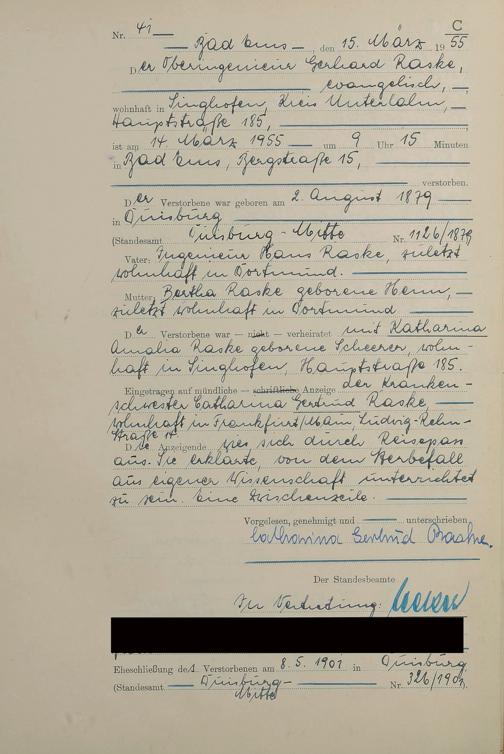 C
Nr. 41
Bad Ems, den 15. März 1955
Der Oberingenieur Gerhard Raske,
evangelisch,
wohnhaft in Singhofen, Kreis Unterlahn,
Hauptstraße 185,
ist am 14. März 1955 um 9 Uhr 15 Minuten
in Bad Ems, Bergstraße 15,
verstorben.
Der Verstorbene war geboren am 2. August 1879
in Duisburg
(Standesamt Duisburg-Mitte Nr. 1126/1879
Vater: Ingenieur Hans Raske, zuletzt
wohnhaft in Dortmund.
Mutter: Bertha Raske geborene Henn,
zuletzt wohnhaft in Dortmund
Der Verstorbene war — nicht — verheiratet mit Katharina
Amalia Raske geborene Scheerer, wohn-
haft in Singhofen, Hauptstraße 185.
Eingetragen auf mündliche — schriftliche Anzeige der Kranken-
schwester Catharina Gertrud Raske
wohnhaft in Frankfurt/Main Ludwig-Rehn-
Straße
Die Anzeigende wies sich durch Reisepass
aus. Sie erklärte, von dem Sterbefall
aus eigener Wissenschaft unterrichtet
zu sein. Eine Zwischenzeile.
Vorgelesen, genehmigt und unterschrieben
Catharina Gertrud Raske.
Der Standesbeamte
In Vertretung:
Eheschließung des Verstorbenen am 8.5.1901 in Duisburg
(Standesamt Duisburg-
Mitte Nr. 326/1901).